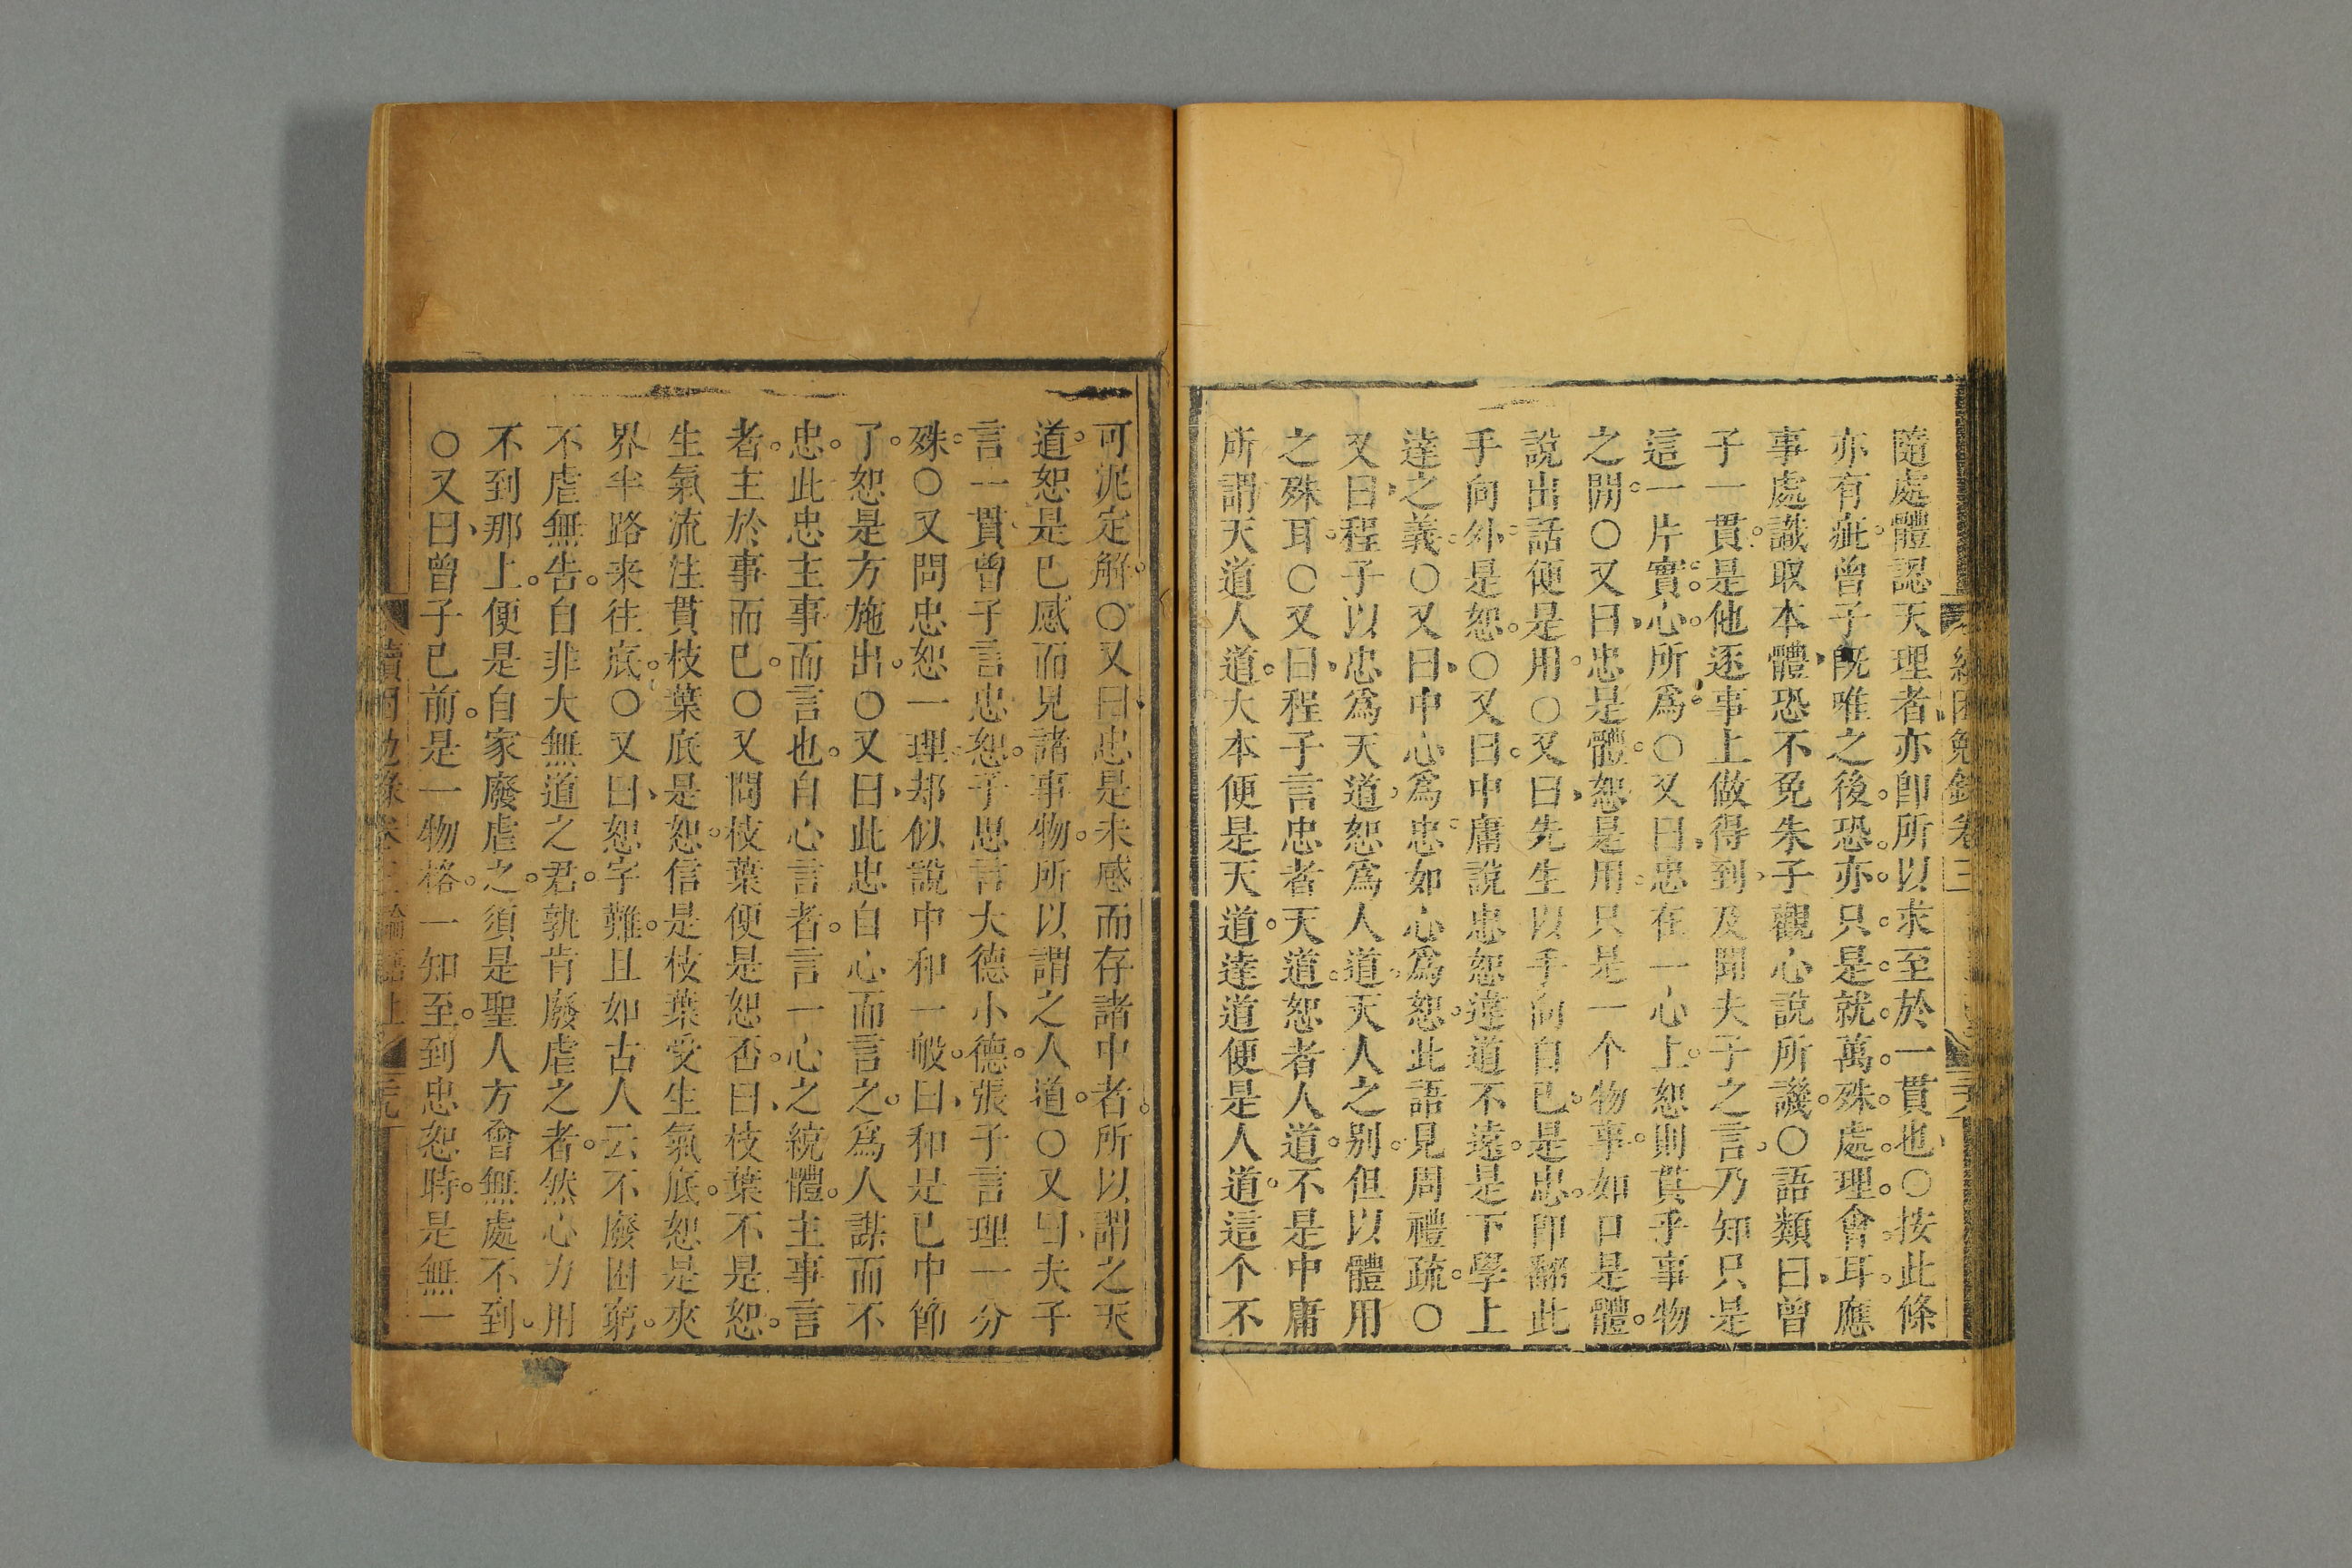 隨處體認天理者亦卽所以求至於一貫也○按此條
亦有疵曾子旣唯之後恐亦只是就萬殊處理會耳應
事處識取本體恐不免朱子觀心說所譏○語類曰曾
子一貫是他逐事上做得到及聞夫子之言乃知只是
這一片實心所爲○又曰忠在一心上恕則貫乎事物
之閒○又曰忠是體恕是用只是一个物事如口是體
說出話便是用○又曰先生以手向自己是忠卽翻此
手向外是恕○又曰中庸說忠恕違道不遠是下學上
達之義○又曰中心爲忠如心爲恕此語見周禮疏○
又曰程子以忠爲天道恕爲人道天人之别但以體用
之殊耳○又曰程子言忠者天道恕者人道不是中庸
所謂天道人道大本便是天道達道便是人道這个不
可泥定解○又曰忠是未感而存諸中者所以謂之天
道恕是已感而見諸事物所以謂之人道○又曰夫子
言一貫曾子言忠恕子思言大德小德張子言理一分
殊○又問忠恕一理却似說中和一般曰和是已中節
了恕是方施出○又曰此忠自心而言之爲人謀而不
忠此忠主事而言也自心言者言一心之統體主事言
者主於事而已○又問枝葉便是恕否曰枝葉不是恕
生氣流注貫枝葉底是恕信是枝葉受生氣底恕是夾
界半路来往底○又曰恕字難且如古人云不廢困窮
不虐無告自非大無道之君孰肯廢虐之者然心力用
不到那上便是自家廢虐之須是聖人方會無處不到
○又曰曾子已前是一物格一知至到忠恕時是無一
讀困勉錄卷三論語上